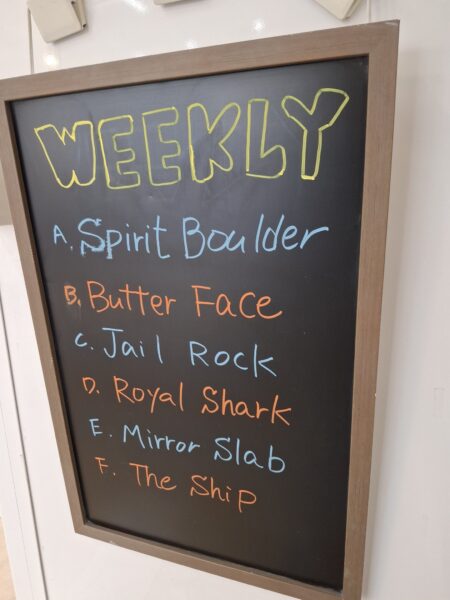 WEEKLY
A. Spirit Boulder
B. Butter Face
C. Jail Rock
D. Royal Shark
E. Mirror Slab
F. The Ship